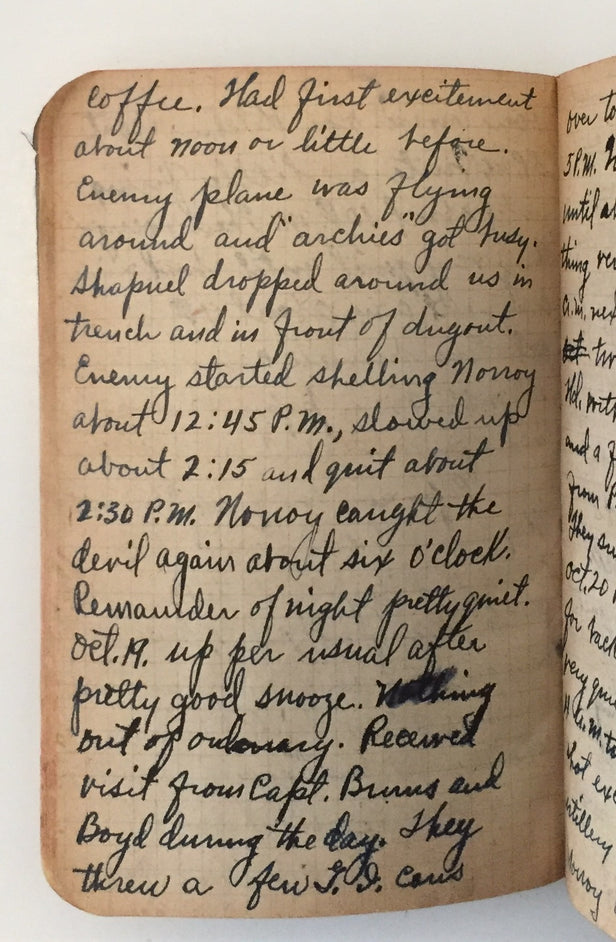 coffee. Had first excitement
about noon or little before.
Enemy plane was flying
around and "archies" got busy.
Shapnel dropped around us in
trench and in front of dugout.
Enemy started shelling Norroy
about 12:45 P.M., slowed up
about 2:15 and quit about
2:30 P.M. Norroy caught the
devil again about six o'clock.
Remainder of night pretty quiet.
Oct. 19. up per usual after
pretty good snooze. Nothing
out of ordinary. Received
visit from Capt. Burns and
Boyd during the day. They
threw a few G.I. cans
over to
5 P.M.
until
thing
two
with
and a
from
They
Oct. 20
for
very
Norroy